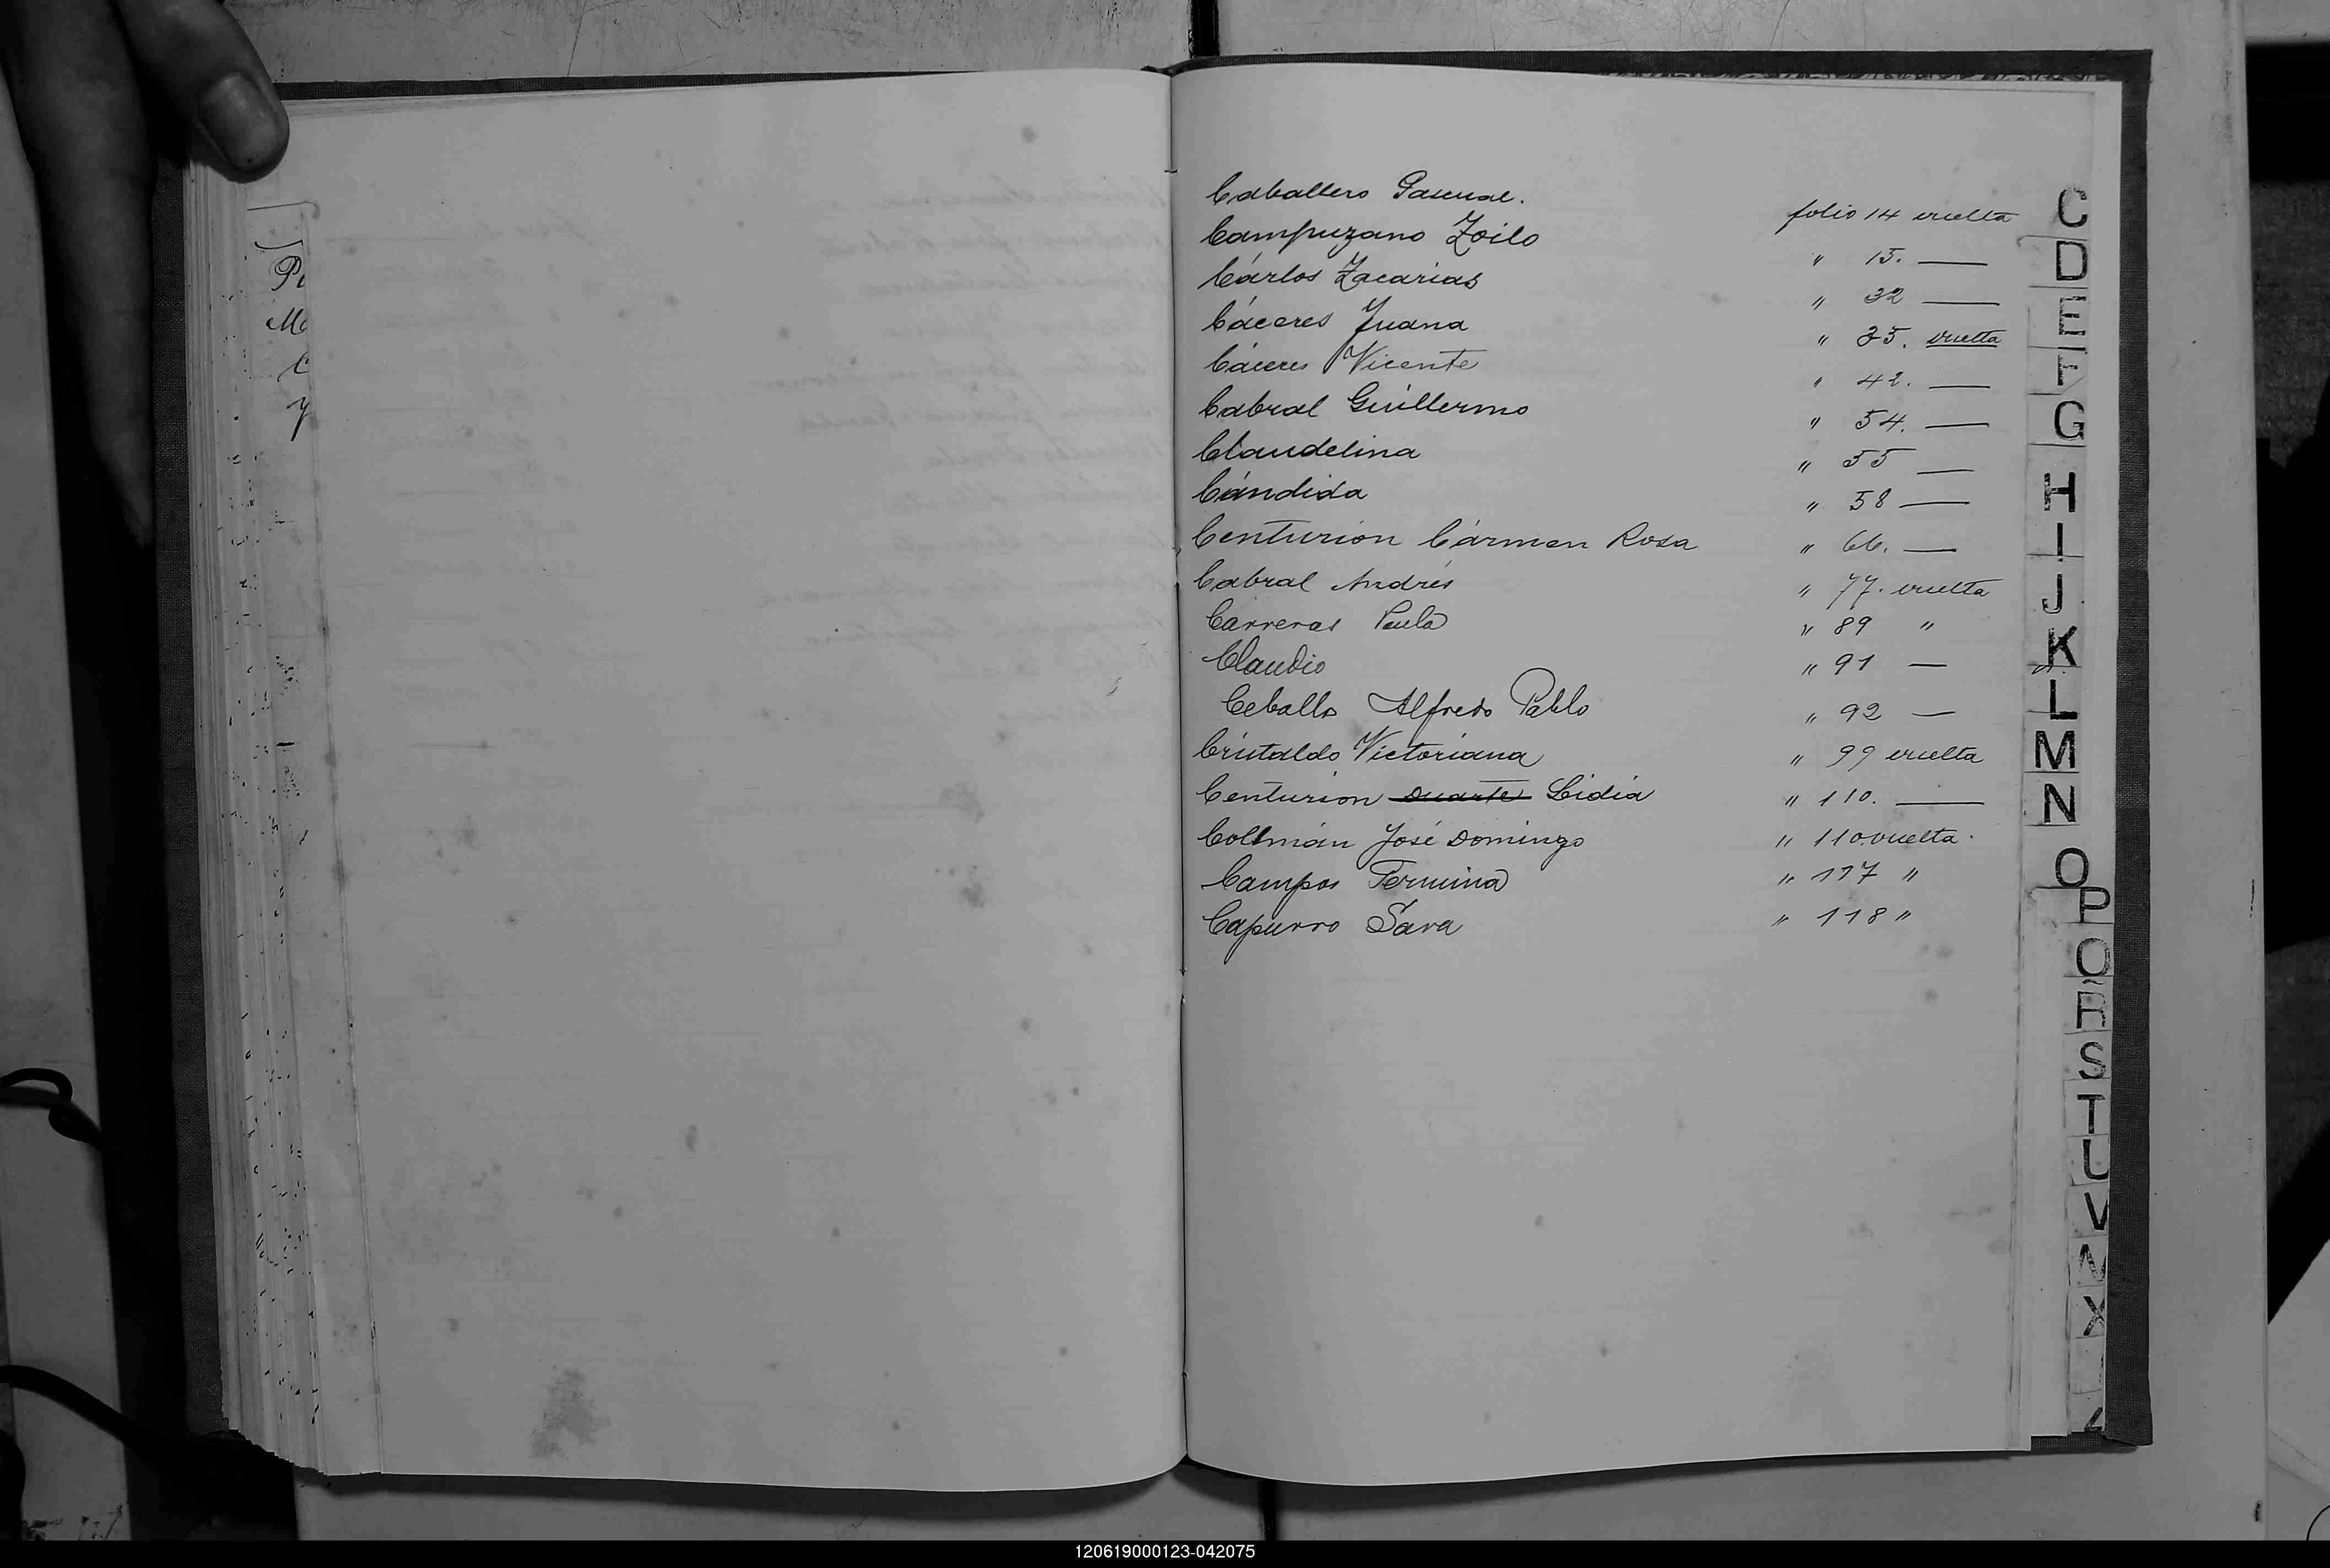 Pr
Mo
C
y
Caballero Pascual. folio 14 vuelta
Campuzano Zoilo " 15. —
Cárlos Zacarias " 32 —
Cáceres Juana " 35. vuelta
Cáceres Vicente " 42. —
Cabral Guillermo " 54. —
Claudelina " 55 —
Cándida " 58 —
Centurión Cármen Rosa " 66. —
Cabral Andrés " 77. vuelta
Carreras Paula " 89 "
Claudio " 91 —
Ceballo Alfredo Pablo " 92 —
Cristaldo Victoriana " 99 vuelta
Centurion Duarte Lidia " 110. —
Collmán José Domingo " 110. vuelta.
Campos Fermina " 117 "
Capurro Sara " 118 "
C
D
E
F
G
H
I
J
K
L
M
N
O
P
Q
R
S
T
U
V
X
120619000123-042075